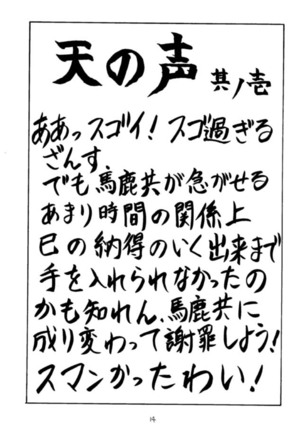 天の声 其ノ壱
ああっスゴイ！スゴ過ぎる
ざんす、
でも馬鹿共が急がせる
あまり時間の関係上
巳の納得のいく出来まで
手を入れられなかったの
かも知れん、馬鹿共に
成り変わって謝罪しよう！
スマンかったわい！
14